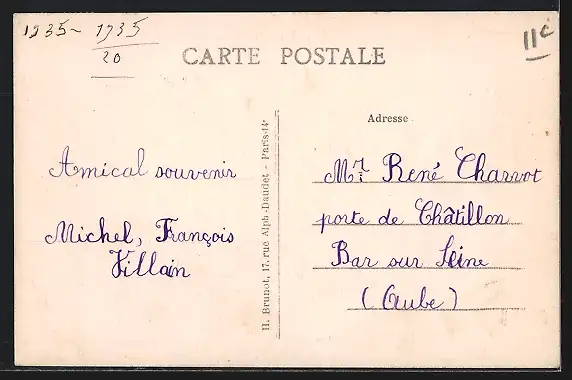 1935~ 1735
20
11c
CARTE POSTALE
Adresse
Amical souvenir
Michel, François
Villain
H. Brunot, 17, rue Alph-Daudet - Paris-14e
Mr René Charrot
porte de Châtillon
Bar sur Seine
(Aube)